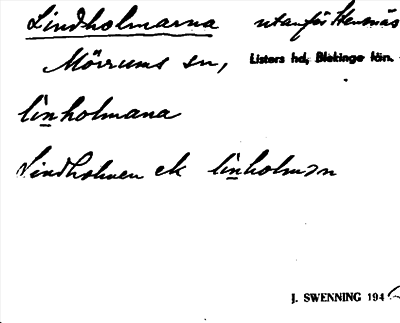 Lindholmarna utanför Stensnäs
Mörrums sn, Listers hd, Blekinge län.
li̲nholmana
Lindholmen ek li̲nholmən
J. SWENNING 194